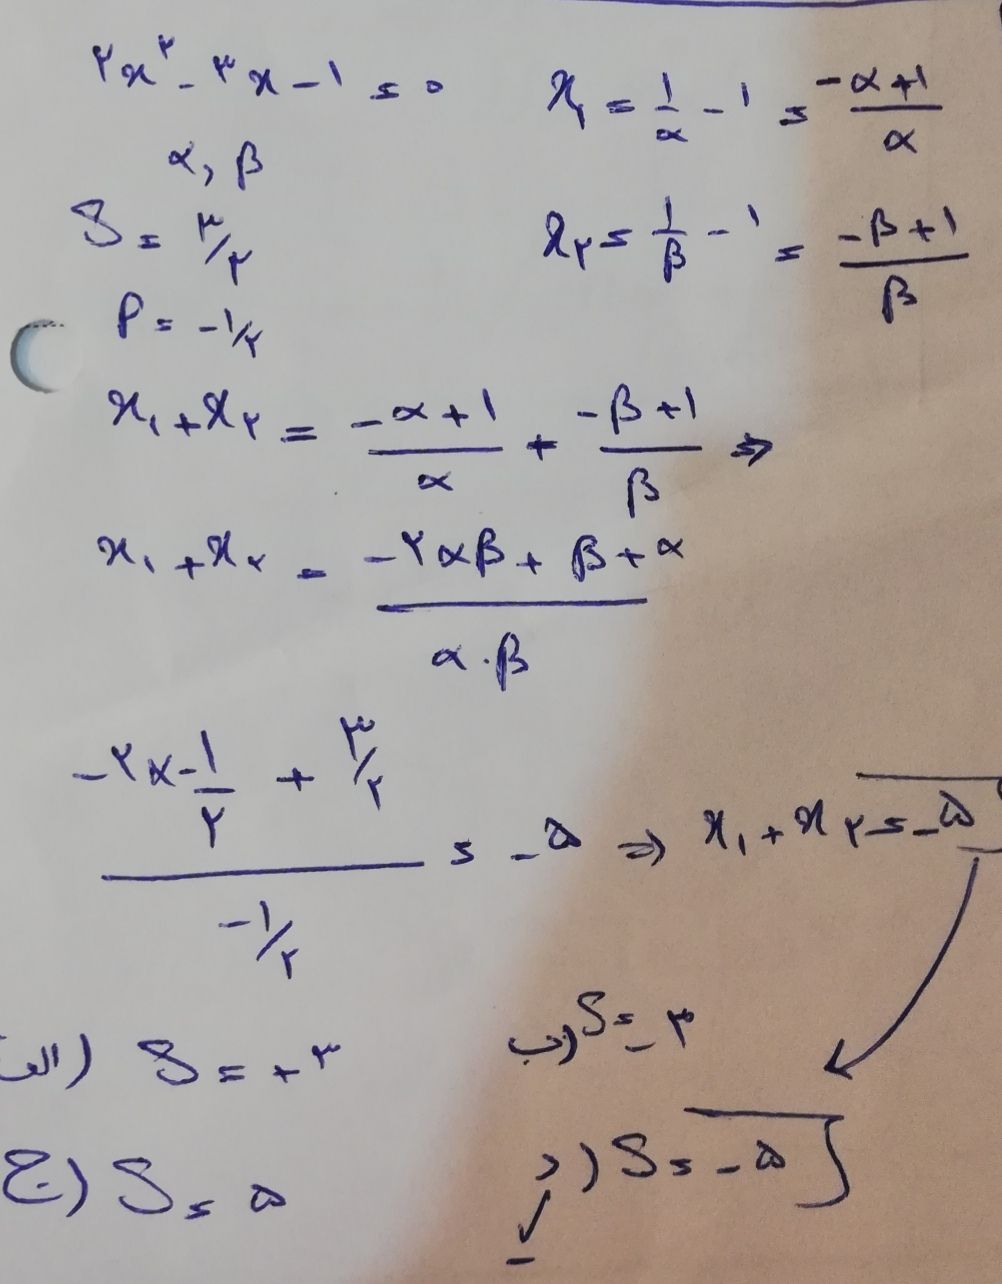 ۲x² - ۳x - ۱ = ۰
α, β
S = ۳/۲
P = -۱/۲
x₁ = ۱/α - ۱ = (-α+۱)/α
x₂ = ۱/β - ۱ = (-β+۱)/β
x₁ + x₂ = (-α+۱)/α + (-β+۱)/β ⇒
x₁ + x₂ = (-۲αβ + β + α)/(α·β)
(-۲×-۱/۲ + ۳/۲)/(-۱/۲) = -۵ ⇒ x₁ + x₂ = -۵
الف) S = +۳
ب) S = -۳
ج) S = ۵
د) S = -۵